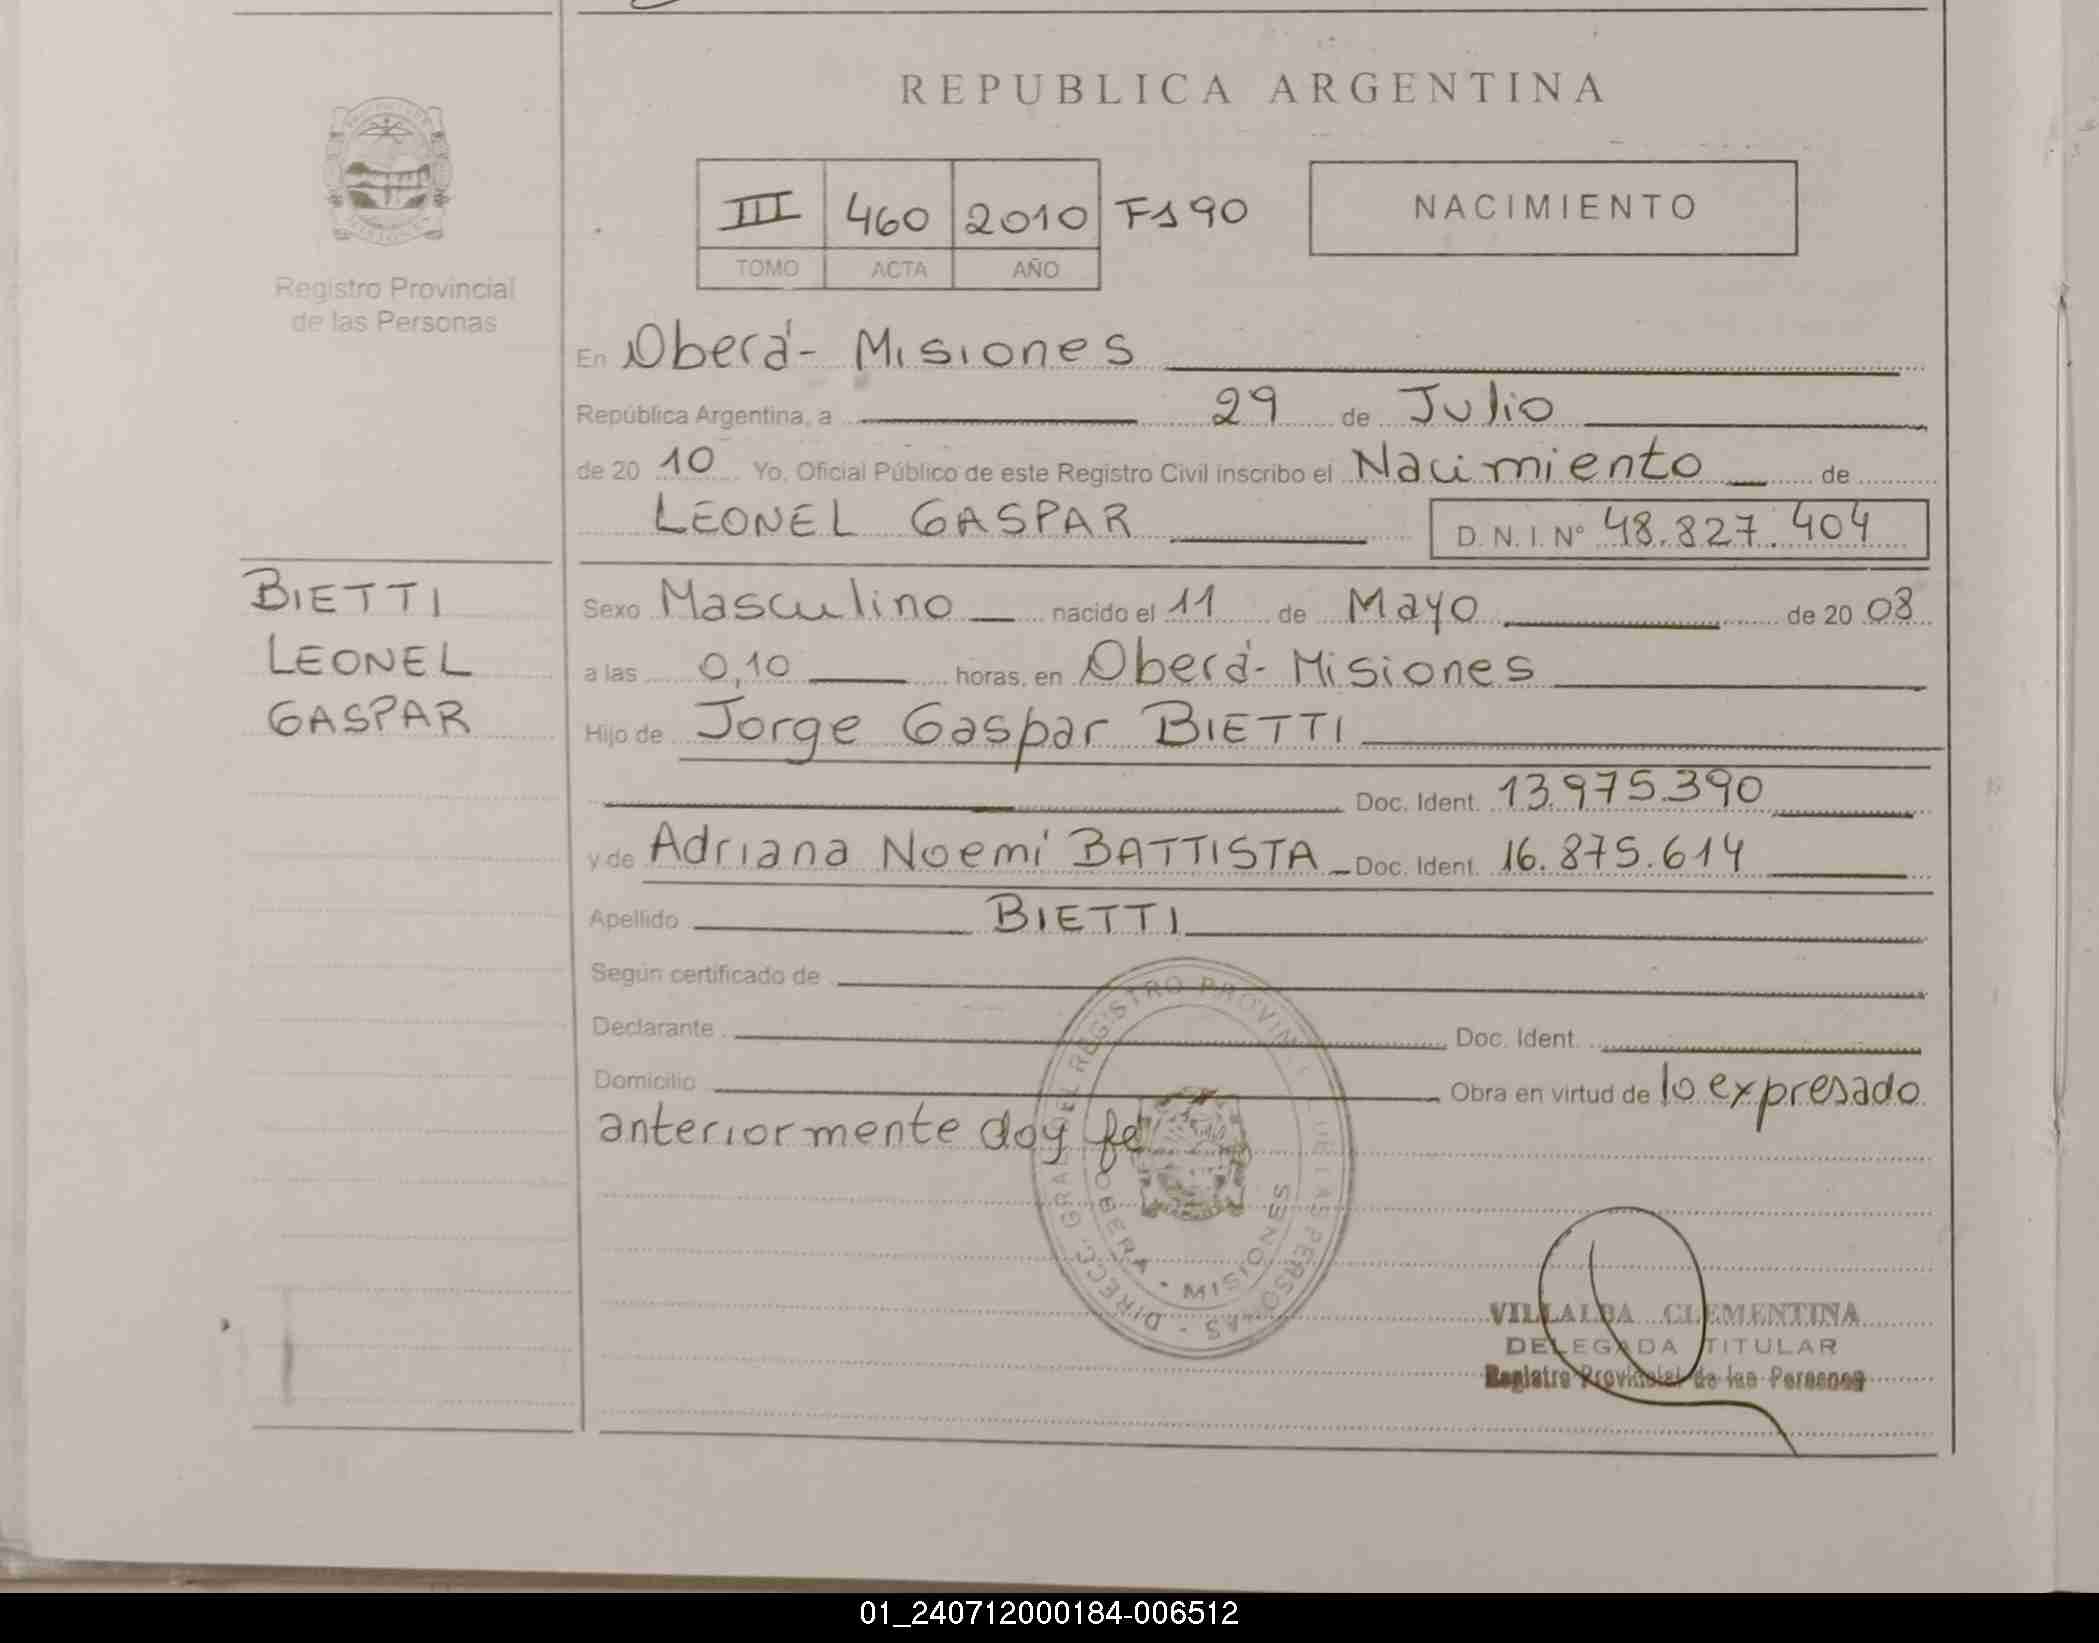 REPUBLICA ARGENTINA
III 460 2010 Fs 90
TOMO ACTA AÑO
NACIMIENTO
Registro Provincial
de las Personas
En Oberá - Misiones
República Argentina, a 29 de Julio
de 20 10 Yo, Oficial Público de este Registro Civil inscribo el Nacimiento de
LEONEL GASPAR D.N.I. Nº 48.827.404
BIETTI
LEONEL
GASPAR
Sexo Masculino nacido el 11 de Mayo de 20 08
a las 0,10 horas, en Oberá - Misiones
Hijo de Jorge Gaspar BIETTI
Doc. Ident. 13.975.390
y de Adriana Noemí BATTISTA Doc. Ident. 16.875.614
Apellido BIETTI
Según certificado de
Declarante Doc. Ident.
Domicilio Obra en virtud de lo expresado
anteriormente doy fe
DIRECC. GRAL. DEL REGISTRO PROVINCIAL DE LAS PERSONAS
OBERA - MISIONES
VILLALBA CLEMENTINA
DELEGADA TITULAR
Registro Provincial de las Personas
01_240712000184-006512